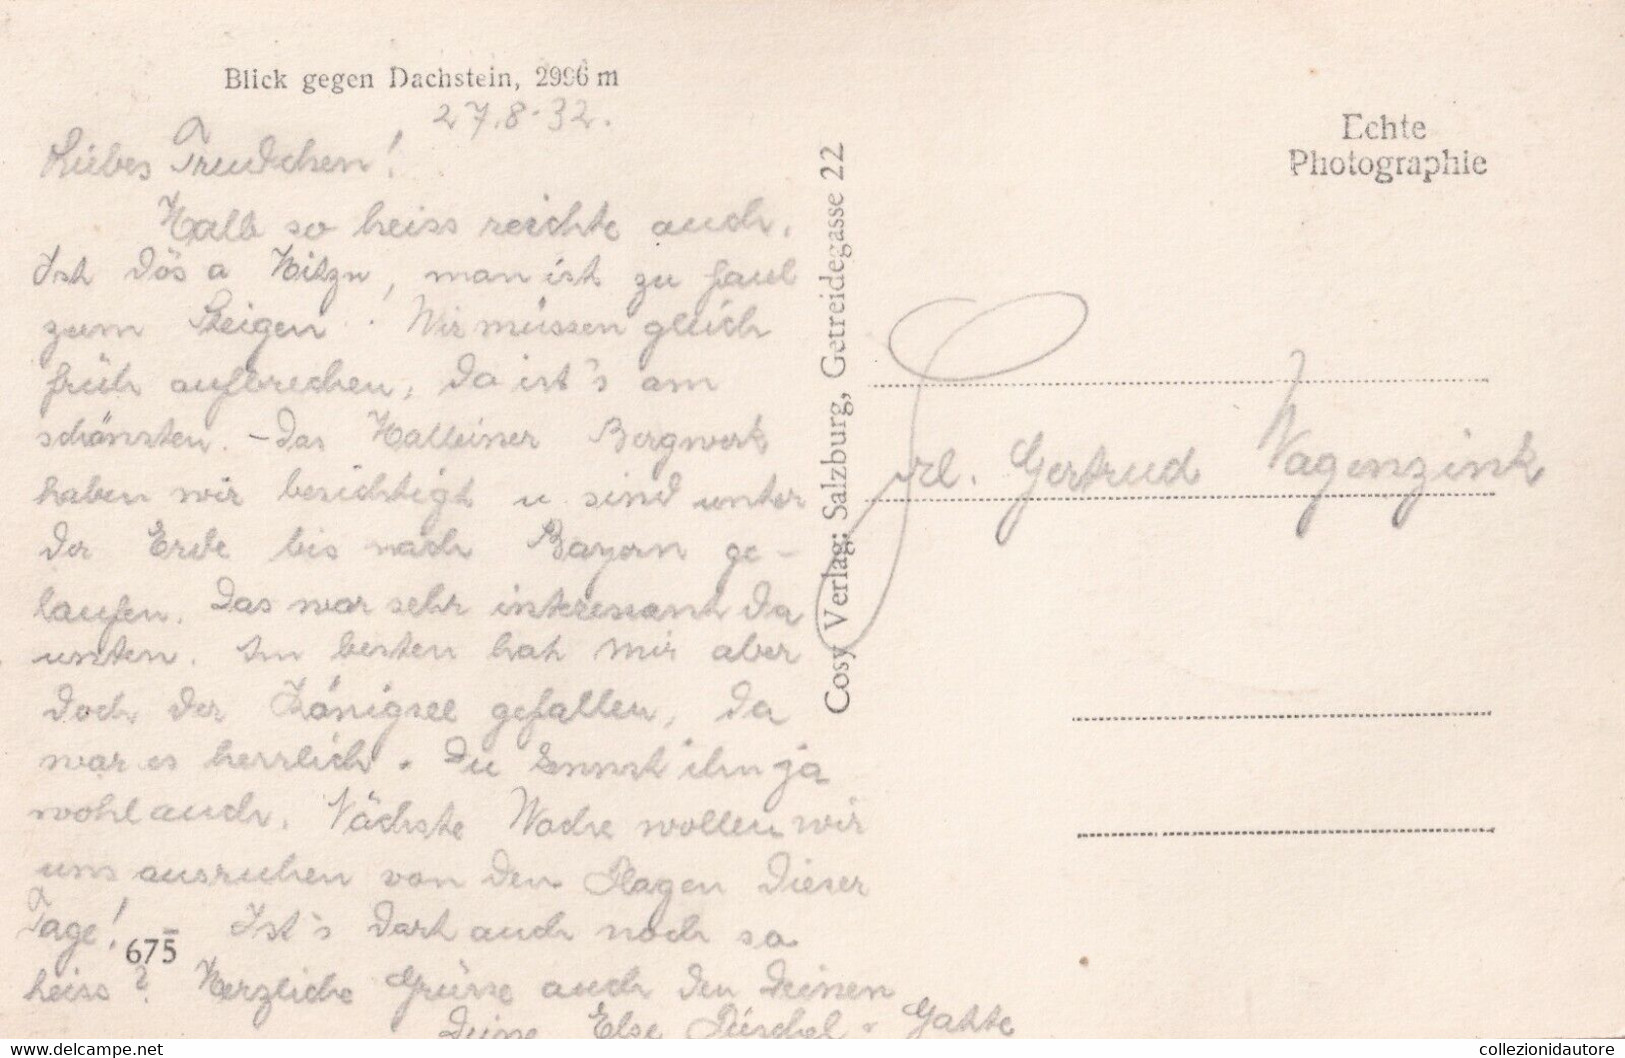 Blick gegen Dachstein, 2996 m
27.8.32.
Liebes Trudchen!
Halb so heiss reichte auch.
Ist dös a Hitzn, man ist zu faul
zum Steigen. Wir müssen gleich
früh aufbrechen, da ist's am
schönsten. - Das Halleiner Bergwerk
haben wir besichtigt u sind unter
der Erde bis nach Bayern ge-
laufen. Das war sehr interessant da
unten. Am besten hat mir aber
doch der Königsee gefallen, da
war es herrlich. Du kennst ihn ja
wohl auch. Nächste Woche wollen wir
uns ausruhen von den Plagen dieser
Tage! Ist's dort auch noch so
heiss? Herzliche Grüsse auch den Deinen
Deine Else u Gatte
675
Cosy Verlag: Salzburg, Getreidegasse 22
Echte
Photographie
Frl. Gertrud Nagenzink
collezionidautore
delcampe.net